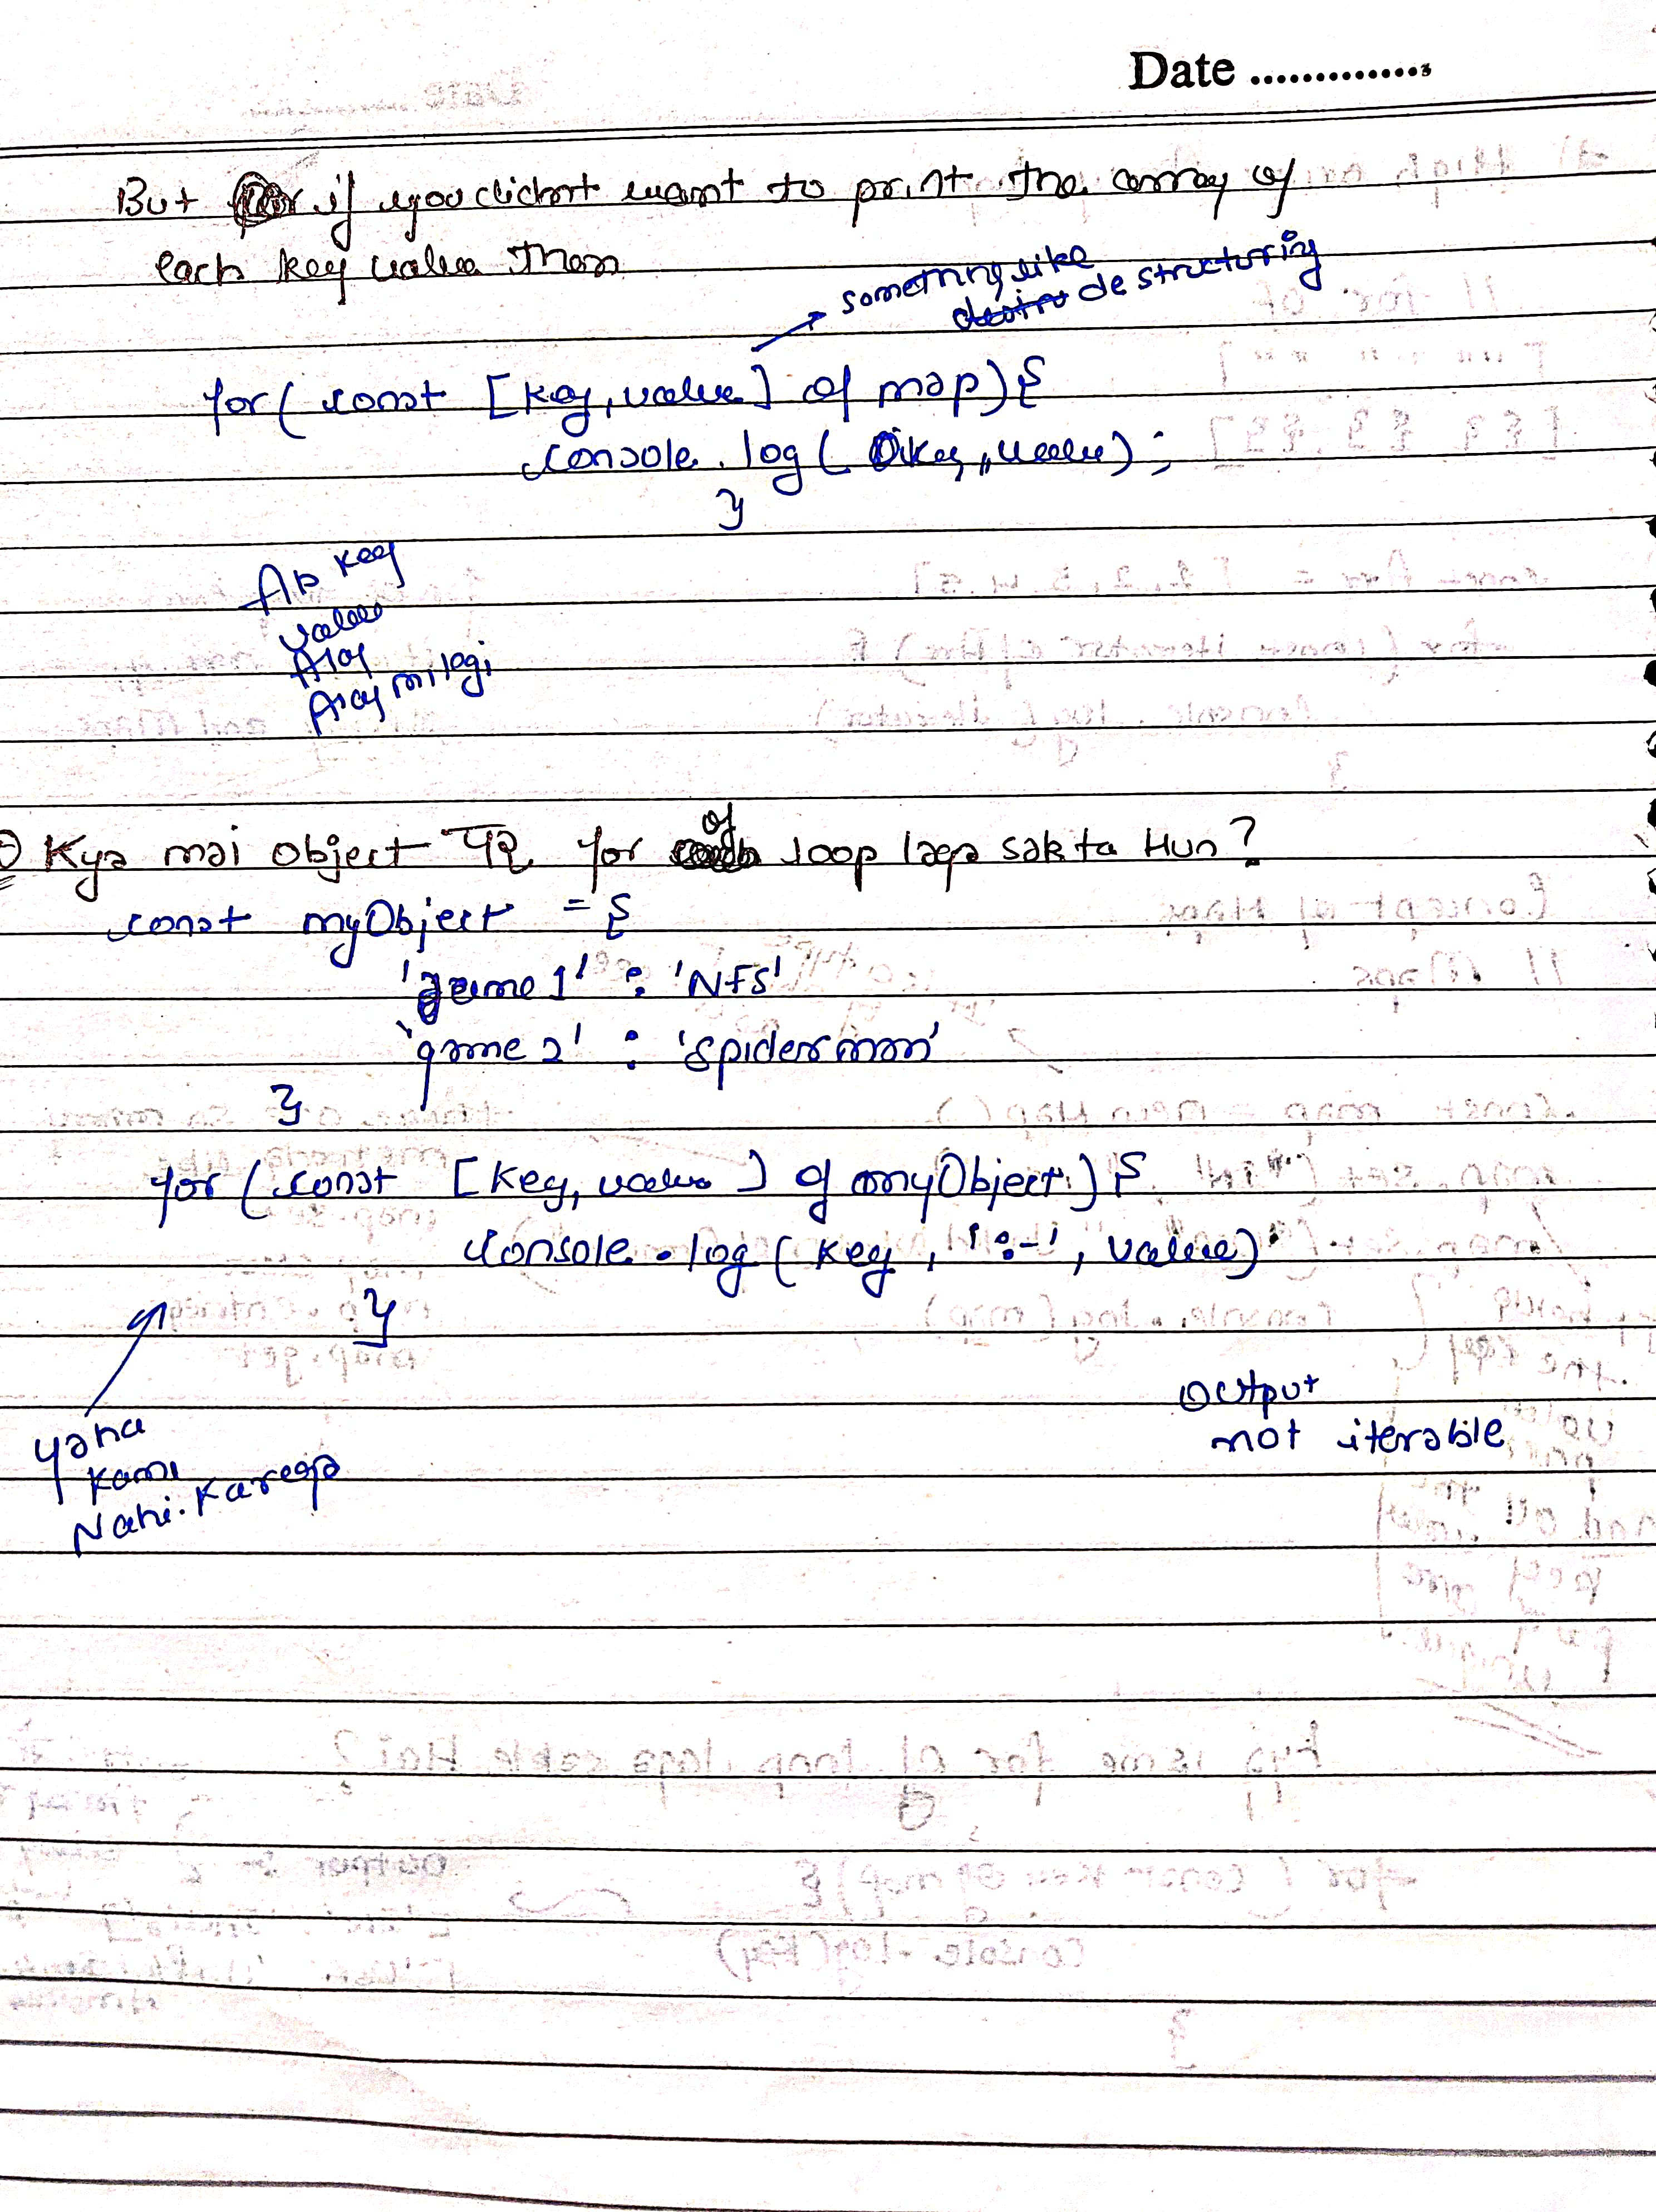 Date ..............
But if you didnt want to print the array of
each key value then
something like
destructuring
for( const [key,value] of map){
console.log( key, value);
}
Ab key
value
Alag
Alag milegi
Kya mai object पर for of loop laga sakta Hun?
const myObject = {
'game1' : 'NFS'
'game2' : 'Spiderman'
}
for ( const [key, value ] of myObject ) {
console.log( key, ':-', value)
}
yaha
kam
Nahi. Karega
Output
not iterable